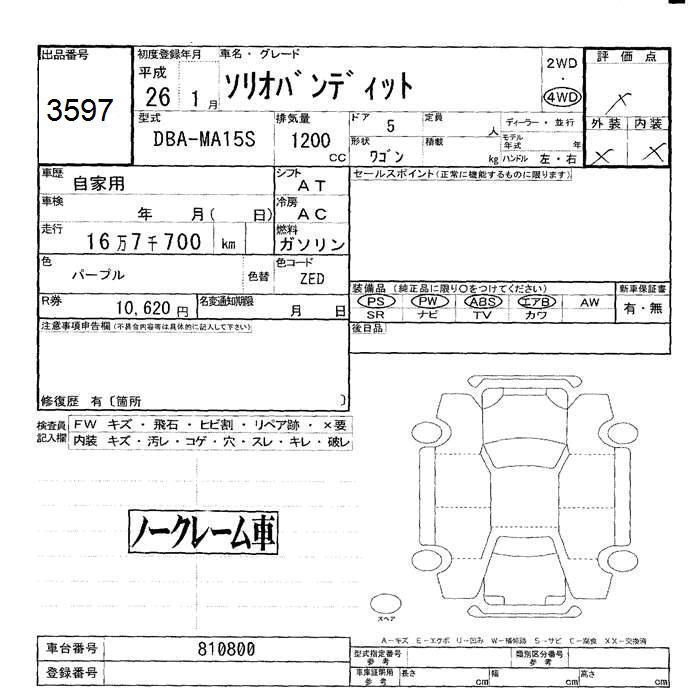 出品番号
3597
初度登録年月
平成
26 1月
車名・グレード
ソリオバンディット
2WD
・
4WD
評価点
外装 内装
型式
DBA-MA15S
排気量
1200
cc
ドア 5
定員 人
ディーラー・並行
形状
ワゴン
積載 kg
モデル年式 年
ハンドル 左・右
車歴
自家用
シフト
AT
セールスポイント(正常に機能するものに限ります)
車検
年 月( 日)
冷房
AC
走行
16万7千700 km
燃料
ガソリン
色
パープル
色替
色コード
ZED
装備品 (純正品に限り○をつけてください)
新車保証書
PS PW ABS エアB AW
有・無
SR ナビ TV カワ
R券
10,620円
名変通知期限
月 日
後日品
注意事項申告欄(不具合内容等は具体的に記入して下さい)
修復歴 有〔箇所 〕
検査員記入欄
FW キズ・飛石・ヒビ割・リペア跡・×要
内装 キズ・汚レ・コゲ・穴・スレ・キレ・破レ
ノークレーム車
スペア
A-キズ E-エクボ U-凹み W-補修跡 S-サビ C-腐食 XX-交換済
車台番号
810800
登録番号
型式指定番号
参考
類別区分番号
参考
車庫証明用
参考
長さ cm
幅 cm
高さ cm